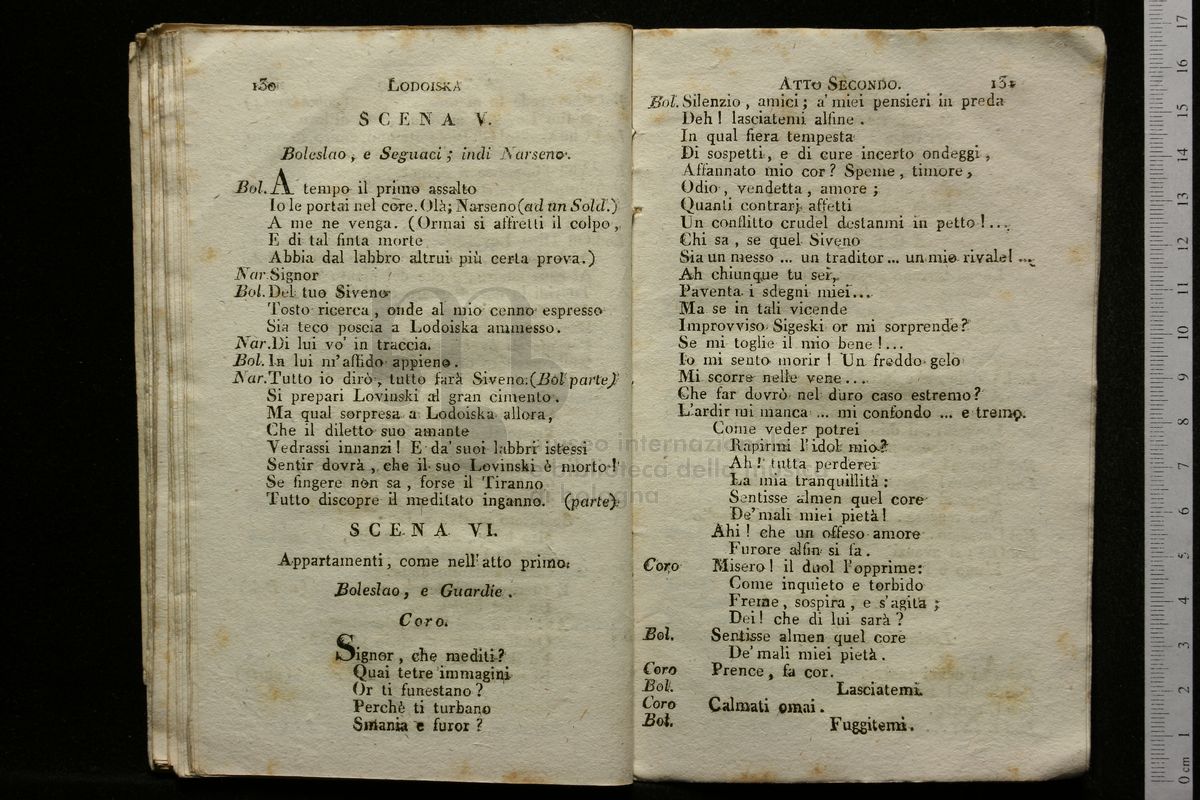 130 LODOISKA
SCENA V.
Boleslao, e Seguaci; indi Narseno.
Bol. A tempo il primo assalto
Io le portai nel core. Olà; Narseno (ad un Sold.)
A me ne venga. (Ormai si affretti il colpo,
E di tal finta morte
Abbia dal labbro altrui più certa prova.)
Nar. Signor
Bol. Del tuo Siveno
Tosto ricerca, onde al mio cenno espresso
Sia teco poscia a Lodoiska ammesso.
Nar. Di lui vo' in traccia.
Bol. In lui m'affido appieno.
Nar. Tutto io dirò, tutto farà Siveno. (Bol parte)
Si prepari Lovinski al gran cimento.
Ma qual sorpresa a Lodoiska allora,
Che il diletto suo amante
Vedrassi innanzi! E da' suoi labbri istessi
Sentir dovrà, che il suo Lovinski è morto!
Se fingere non sa, forse il Tiranno
Tutto discopre il meditato inganno. (parte)
SCENA VI.
Appartamenti, come nell'atto primo.
Boleslao, e Guardie.
Coro.
Signor, che mediti?
Quai tetre immagini
Or ti funestano?
Perchè ti turbano
Smania e furor?
ATTO SECONDO. 131
Bol. Silenzio, amici; a' miei pensieri in preda
Deh! lasciatemi alfine.
In qual fiera tempesta
Di sospetti, e di cure incerto ondeggi,
Affannato mio cor? Speme, timore,
Odio, vendetta, amore;
Quanti contrarj affetti
Un conflitto crudel destanmi in petto!...
Chi sa, se quel Siveno
Sia un messo ... un traditor... un mio rivale! ...
Ah chiunque tu sei,
Paventa i sdegni miei...
Ma se in tali vicende
Improvviso Sigeski or mi sorprende?
Se mi toglie il mio bene!...
Io mi sento morir! Un freddo gelo
Mi scorre nelle vene...
Che far dovrò nel duro caso estremo?
L'ardir mi manca ... mi confondo ... e tremo.
Come veder potrei
Rapirmi l'idol mio?
Ah! tutta perderei
La mia tranquillità:
Sentisse almen quel core
De' mali miei pietà!
Ahi! che un offeso amore
Furore alfin si fa.
Coro Misero! il duol l'opprime:
Come inquieto e torbido
Freme, sospira, e s'agita;
Dei! che di lui sarà?
Bol. Sentisse almen quel core
De' mali miei pietà.
Coro Prence, fa cor.
Bol. Lasciatemi.
Coro Calmati omai.
Bol. Fuggitemi.
museo internazionale
e biblioteca della musica
di bologna
17
16
15
14
13
12
11
10
9
8
7
6
5
4
3
2
1
0 cm